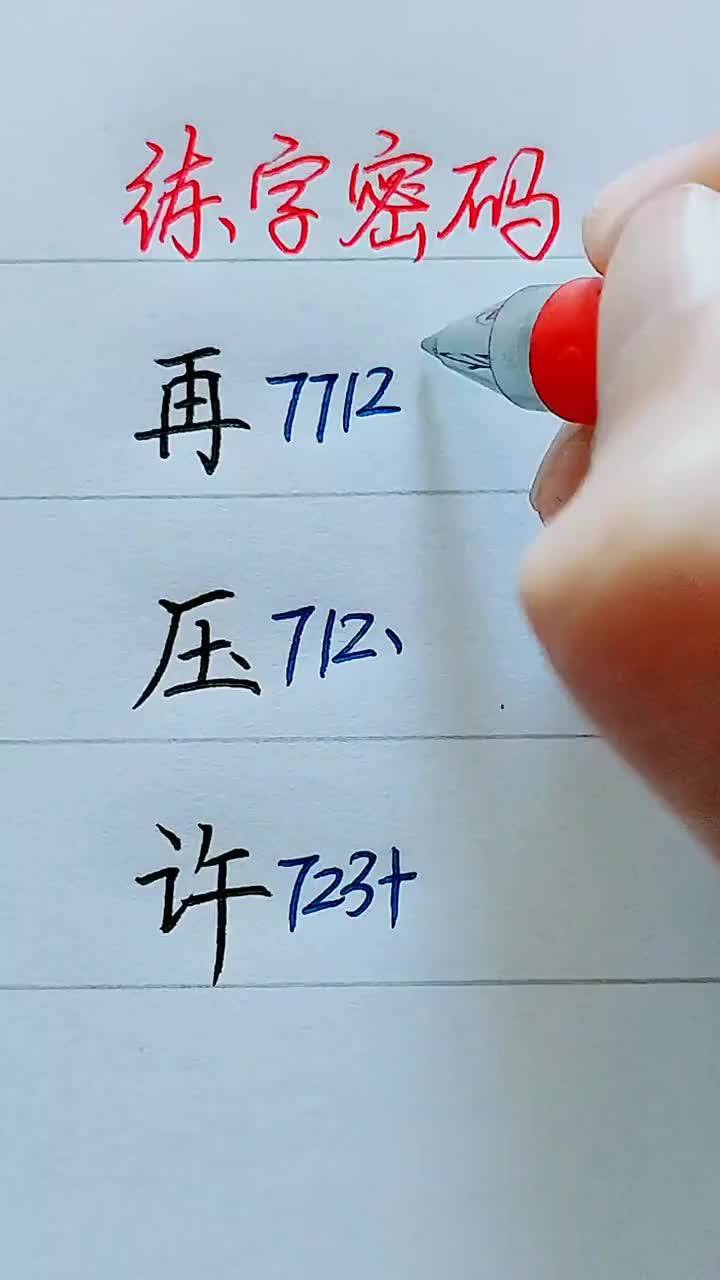 练字密码
再 7712
压 712、
许 723+